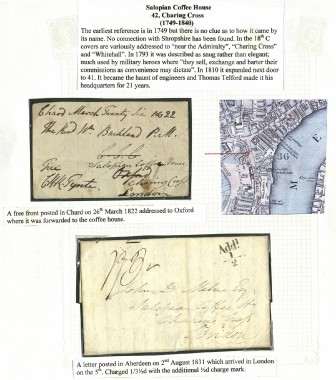 Salopian Coffee House
42, Charing Cross
(1749-1840)
The earliest reference is in 1749 but there is no clue as to how it came by
its name. No connection with Shropshire has been found. In the 18th C
covers are variously addressed to "near the Admiralty", "Charing Cross"
and "Whitehall". In 1793 it was described as snug rather than elegant;
much used by military heroes where "they sell, exchange and barter their
commissions as convenience may dictate". In 1810 it expanded next door
to 41. It became the haunt of engineers and Thomas Telford made it his
headquarters for 21 years.
Chard March Twenty Six 1822
The Revd Wm
Salopian Coffee House
Oxford
Free
Charing Cross
London
36
M E
A free front posted in Chard on 26th March 1822 addressed to Oxford
where it was forwarded to the coffee house.
Addl
1/2
John
Salopian Coffee
Charing Cross
London
A letter posted in Aberdeen on 2nd August 1831 which arrived in London
on the 5th. Charged 1/3½d with the additional ½d charge mark.